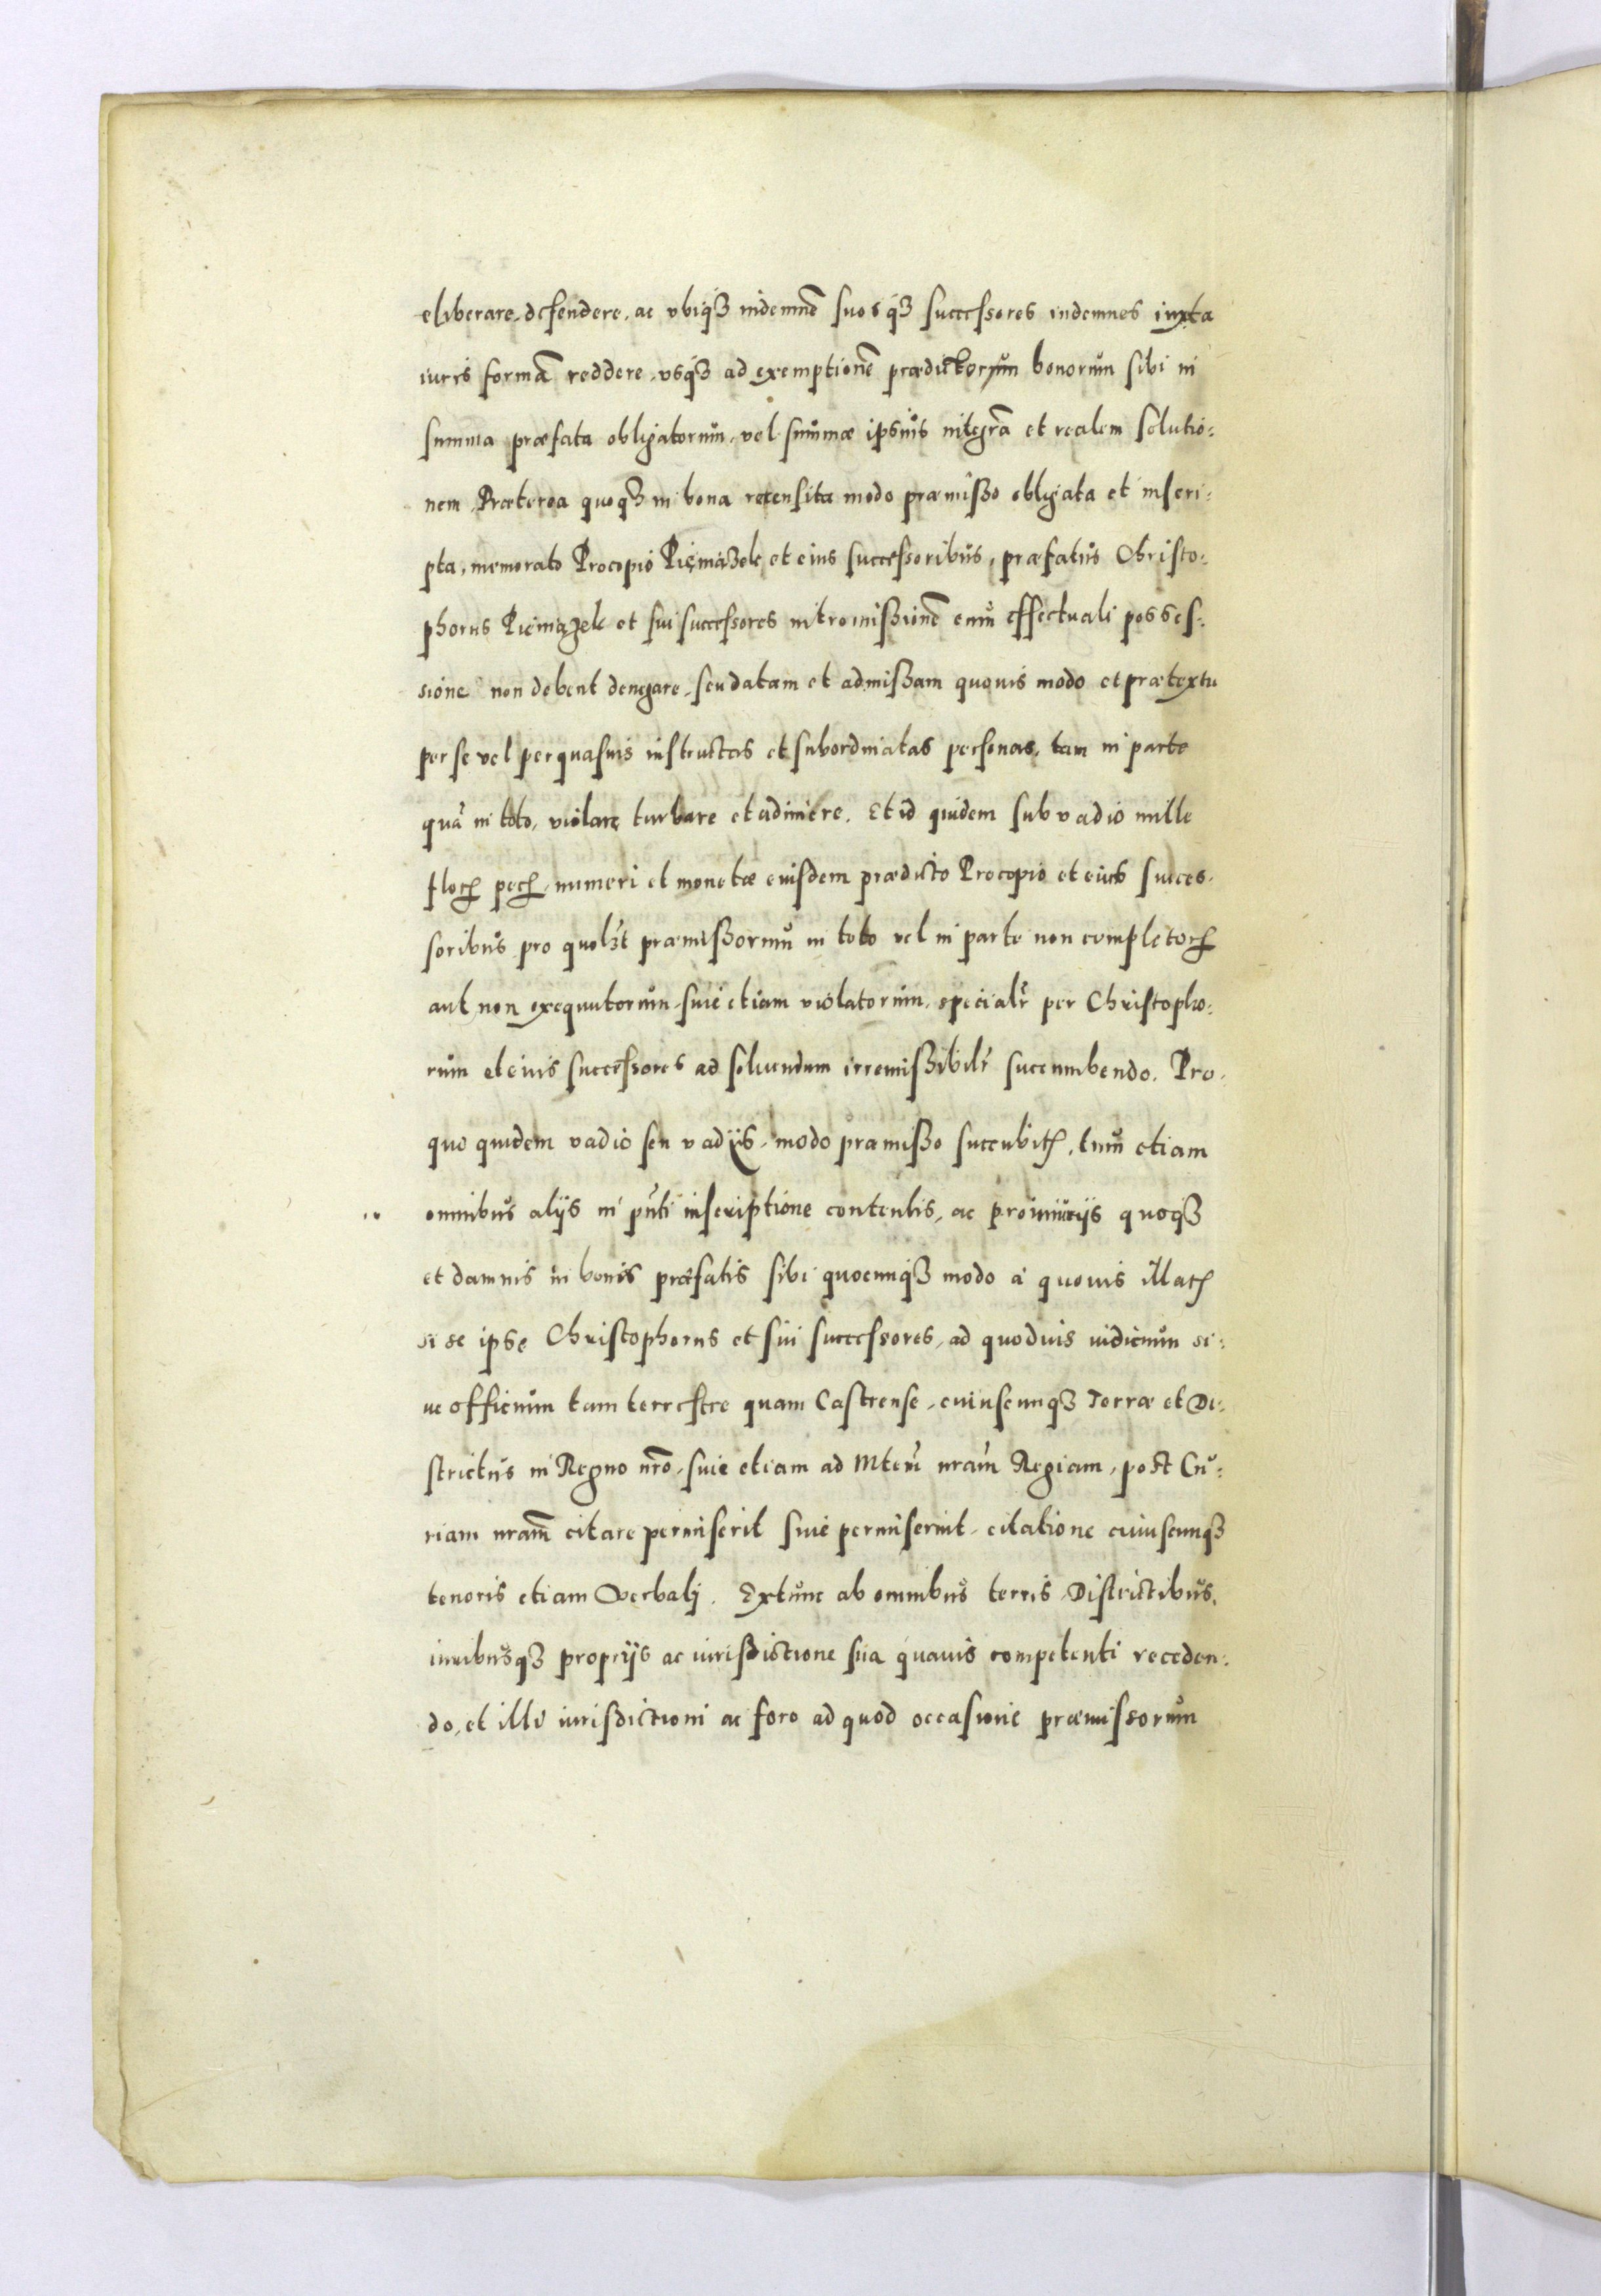 eliberare, defendere, ac vbiqꝫ indemnē suosqꝫ successores indemnes iuxta
iuris formā reddere, vsqꝫ ad exemptionē prædictorum bonorum sibi in
summa præfata obligatorum, vel summæ ipsius integrā et realem solutio:
nem. Præterea quoqꝫ in bona recensita modo præmisso obligata et inscri:
pta, memorato Procopio Pieniążek et eius successoribus, præfatus Christo:
phorus Pieniązek et sui successores intromissionē cum effectuali posses:
sione non debent denegare, seu datam et admissam quouis modo et prætextu
per se vel per quasuis instructas et subordinatas personas, tam in parte
quā in toto, violare turbare et adimere. Et id quidem sub vadio mille
floꝝ pecꝝ, numeri et monetæ eiusdem prædicto Procopio et eius succes:
soribus pro quolꝫt præmissorum in toto vel in parte non completoꝝ
aut non exequutorum, siue etiam violatorum, specialr̄ per Christopho:
rum et eius successores ad soluendum irremissibilr̄ succumbendo. Pro
quo quidem vadio seu vadijs, modo præmisso succubitꝭ, tum etiam
omnibus alijs in pn̄ti inscriptione contentis, ac pro iniurijs quoqꝫ
et damnis in bonis præfatis sibi quocunqꝫ modo à quouis illatꝭ
si se ipse Christophorus et sui successores, ad quoduis iudicium si:
ue officium tam terrestre quam Castrense, cuiuscunqꝫ Terræ et Di:
strictus in Regno nr̄o, siue etiam ad Mtem̄ nram̄ Regiam, post Cu:
riam nram̄ citare permiserit siue permiserint, citatione cuiuscunqꝫ
tenoris etiam Verbali. Extunc ab omnibus terris Districtibus,
iuribusqꝫ proprijs ac iurisdictione sua quauis competenti receden:
do, et illi iurisdictioni ac foro ad quod occasione præmissorum